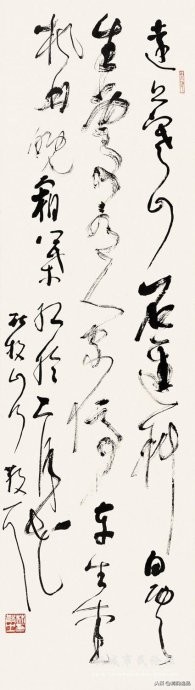 遠上寒山石徑斜白雲
生處有人家停車坐愛
楓林晚霜葉紅於二月花
杜牧山行 散